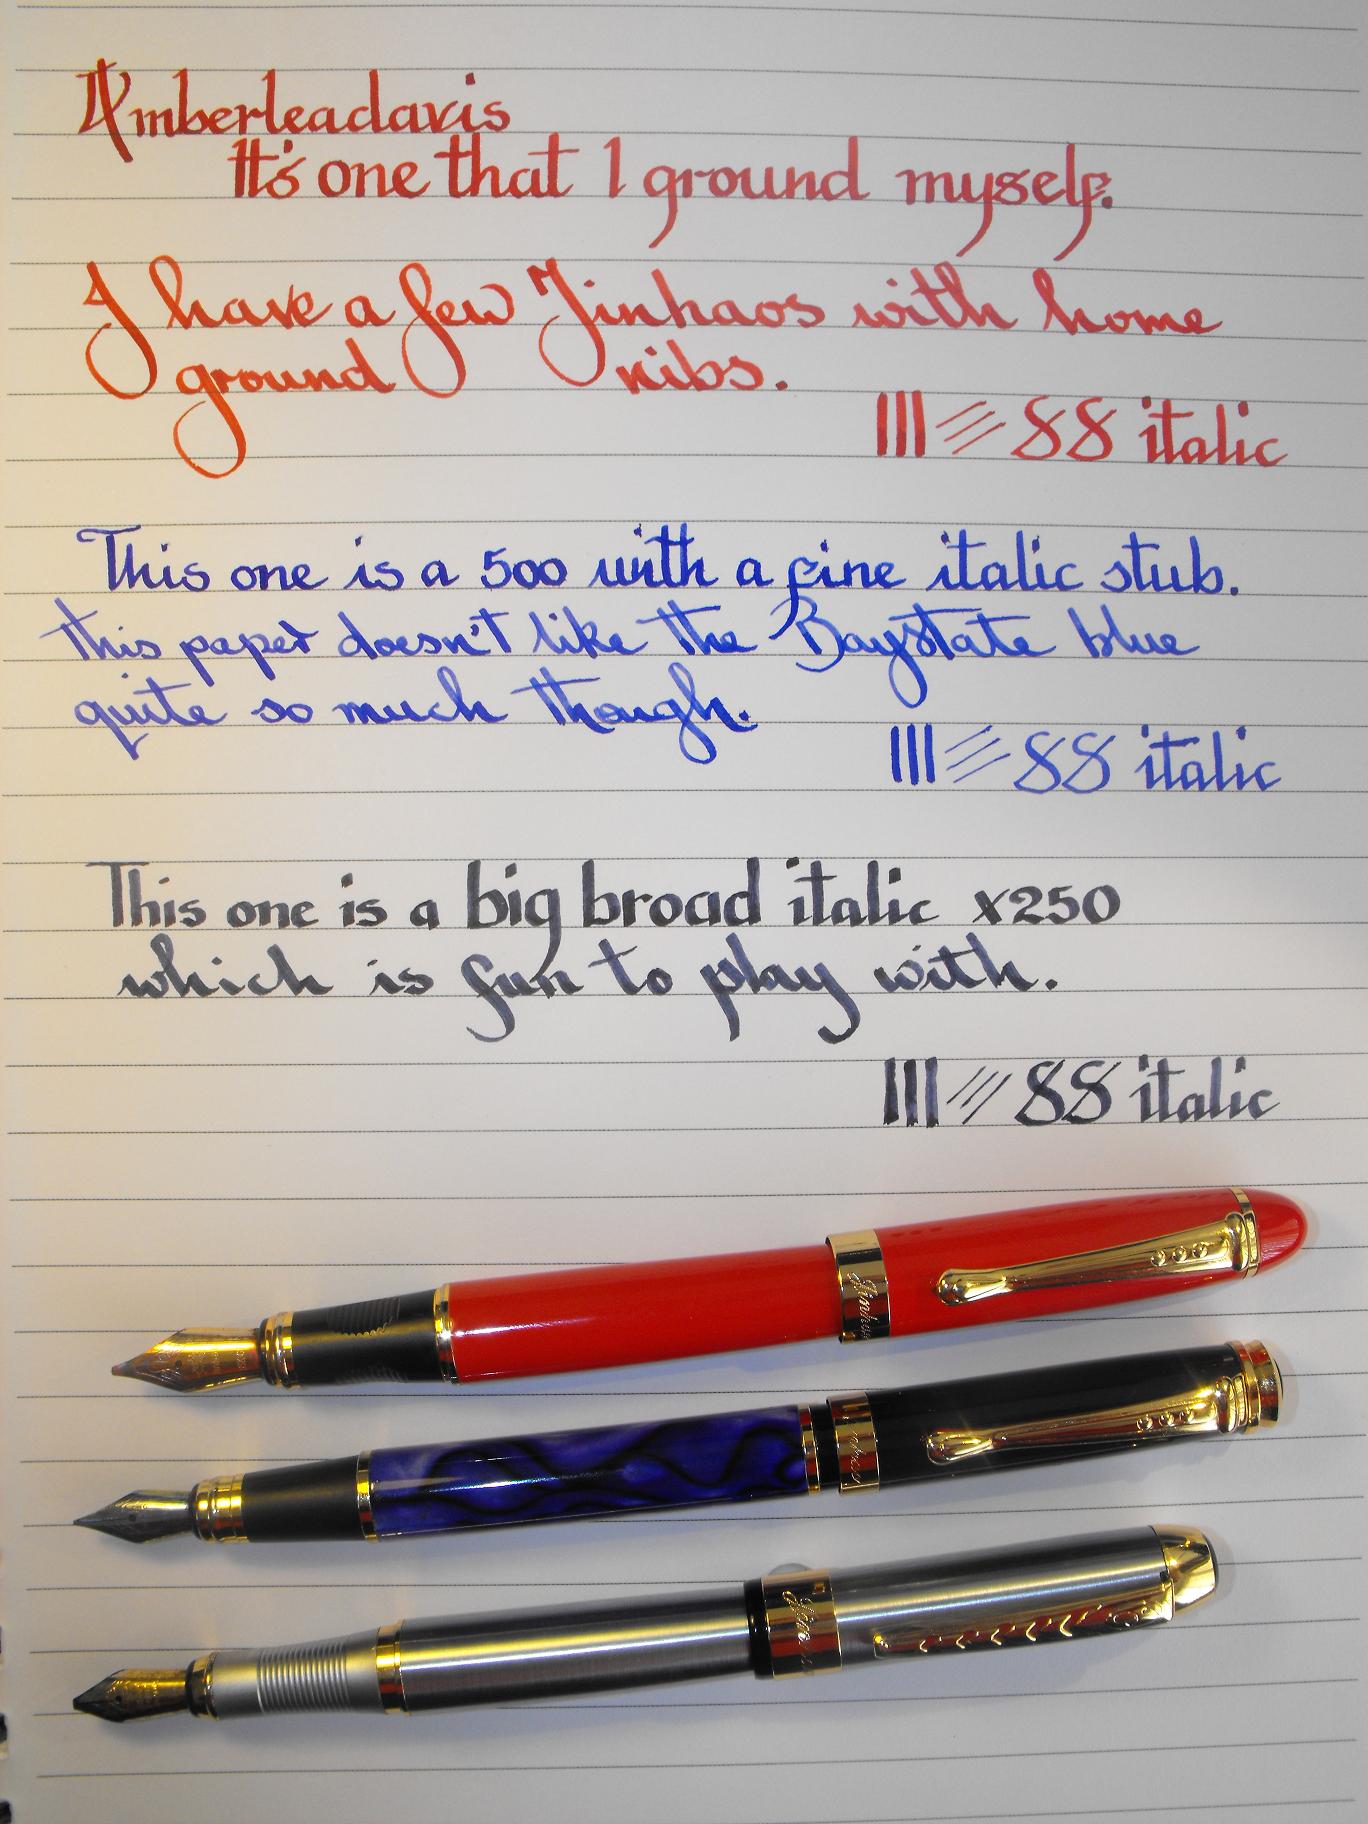 Amberleadavis
It's one that I ground myself.
I have a few Jinhaos with home
ground nibs.
III 88 italic
This one is a 500 with a fine italic stub.
this paper doesn't like the Baystate blue
quite so much though.
III 88 italic
This one is a big broad italic x250
which is fun to play with.
III 88 italic
Jinhao
Jinhao
Jinhao